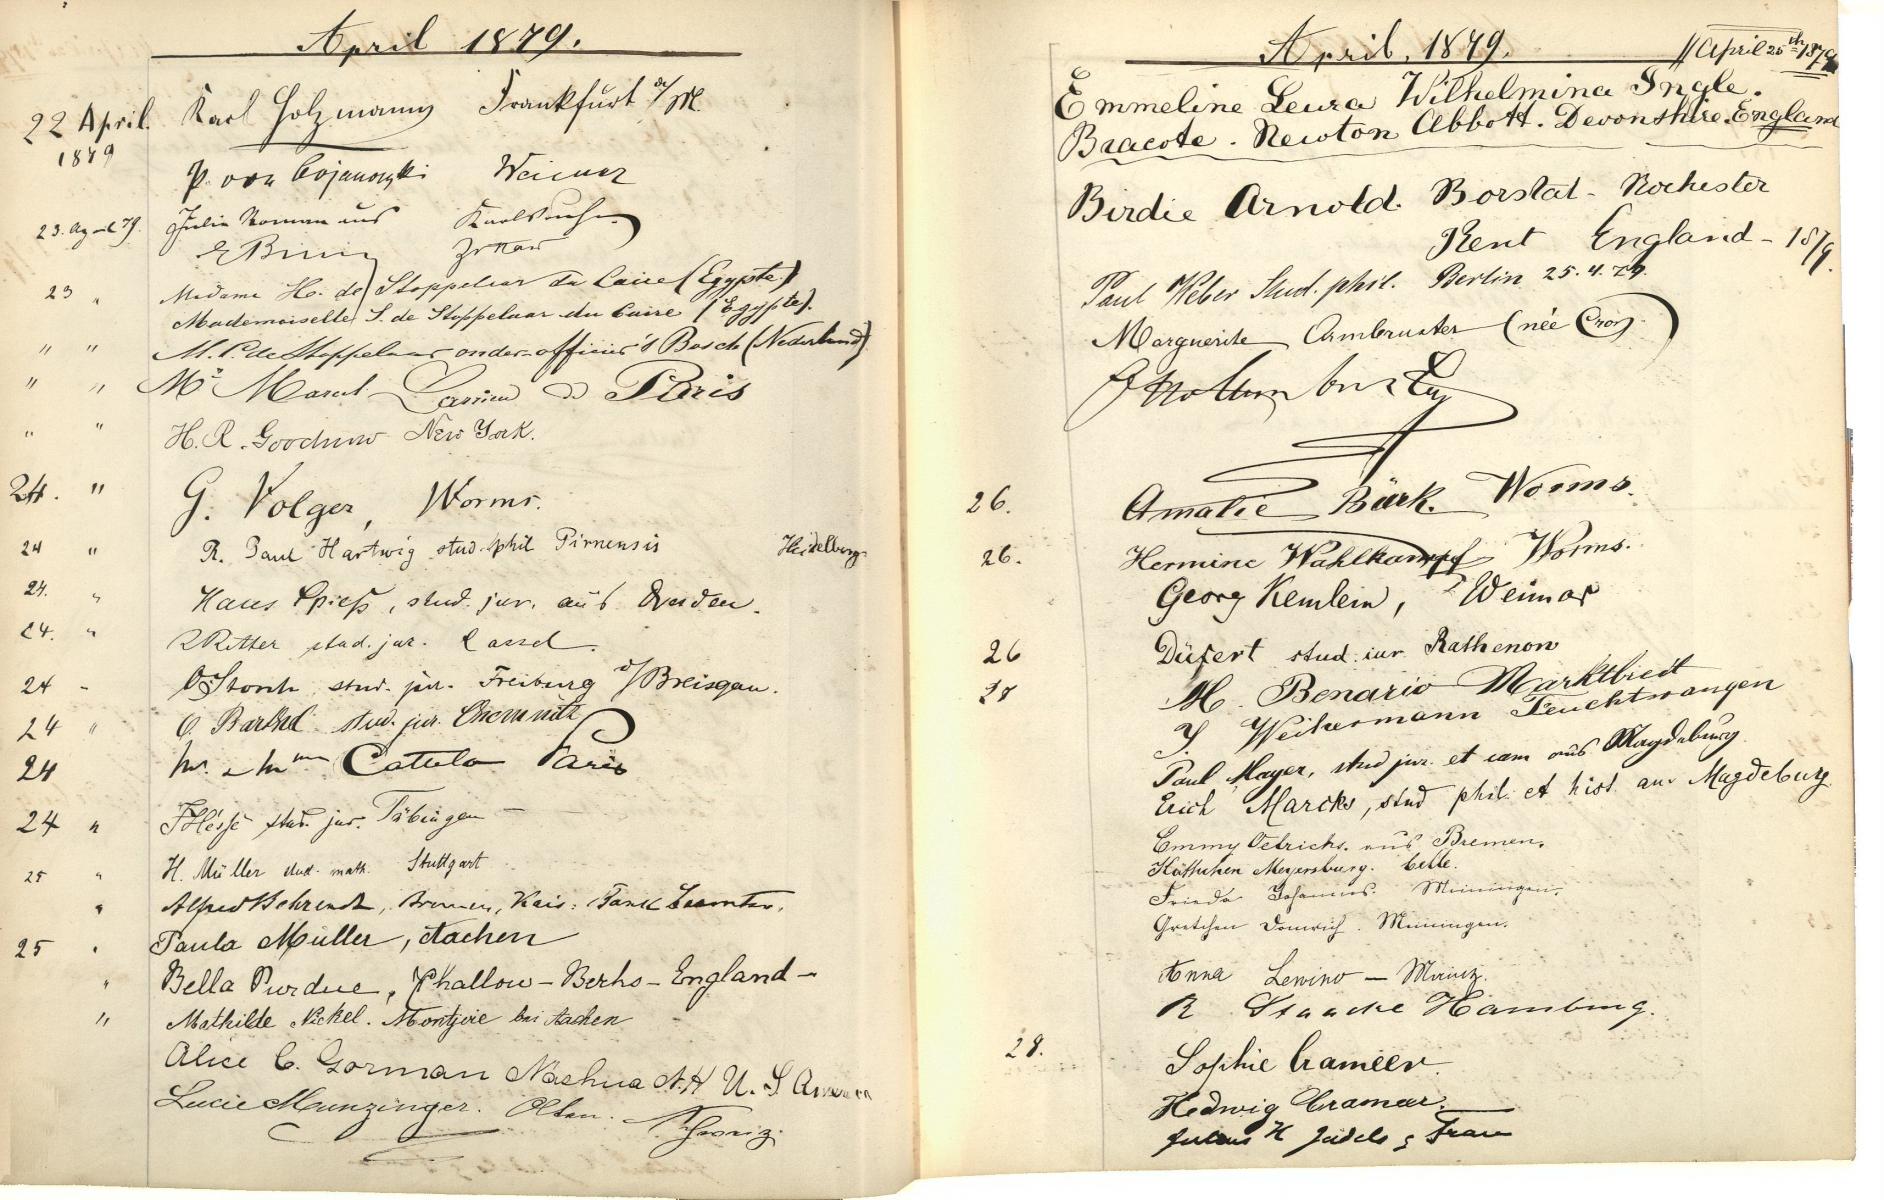 April 1879.
22 April. Karl Holzmann Frankfurt a/M.
1879
P. von Bojanowski Weimar
23. April 79. Julie Roman aus Karlsruhe
23 " Madame H. de Stoppelaar du Caire (Egypte)
Mademoiselle S. de Stoppelaar du Caire (Egypte).
" " M. P. de Stoppelaar onder-officier 's Bosch (Nederland)
" " Mr Marcel Paris
" " H. R. Goodnow New York.
24. " G. Volger, Worms.
24 " R. Paul Hartwig stud. phil Pirnensis Heidelberg
24. " Hans Spieß, stud. jur. aus Dresden.
24. " Ritter stud. jur. Cassel.
24 " Storch stud. jur. Freiburg i/Breisgau.
24 " O. Barthel stud. jur. Chemnitz
24 Mr. & Mme Cattela Paris
24 " Hesse stud. jur. Tübingen —
25 " H. Müller stud. math. Stuttgart
" Alfred Behrendt, Bremen, Kais:
25 " Paula Müller, Aachen
" Bella Purdue, Berks - England -
" Mathilde Nickel. Montjoie bei Aachen
Alice C. Gorman Nashua N.H U.S America
Lucie Munzinger. Olten. Schweiz.
April, 1879. April 25th 1879
Emmeline Leura Wilhelmina Ingle.
Bracote. Newton Abbott. Devonshire. England
Birdie Arnold. Borstal - Rochester
Kent England - 1879.
Paul Weber Stud. phil. Berlin 25.4.79.
Marguerite Armbruster (née Cron)
26. Amalie Bürk. Worms.
26. Hermine Wahlkampf Worms.
Georg Kemlein, Weimar
26 Düfert stud. iur Rathenow
27 M. Benario Marktbreit
Y. Weikersmann Feuchtwangen
Paul Mayer, stud jur. et cam aus Magdeburg
Erich Marcks, stud phil. et hist. aus Magdeburg
Emmy Oelrichs. aus Bremen.
Käthchen Meyersburg. Celle.
Frieda Johannes. Meiningen.
Gretchen Domrich. Meiningen.
Anna Lewino — Mainz.
R Staacke Hamburg.
28. Sophie Crameer.
Hedwig Cramer.
Julius H Jüdels & Frau